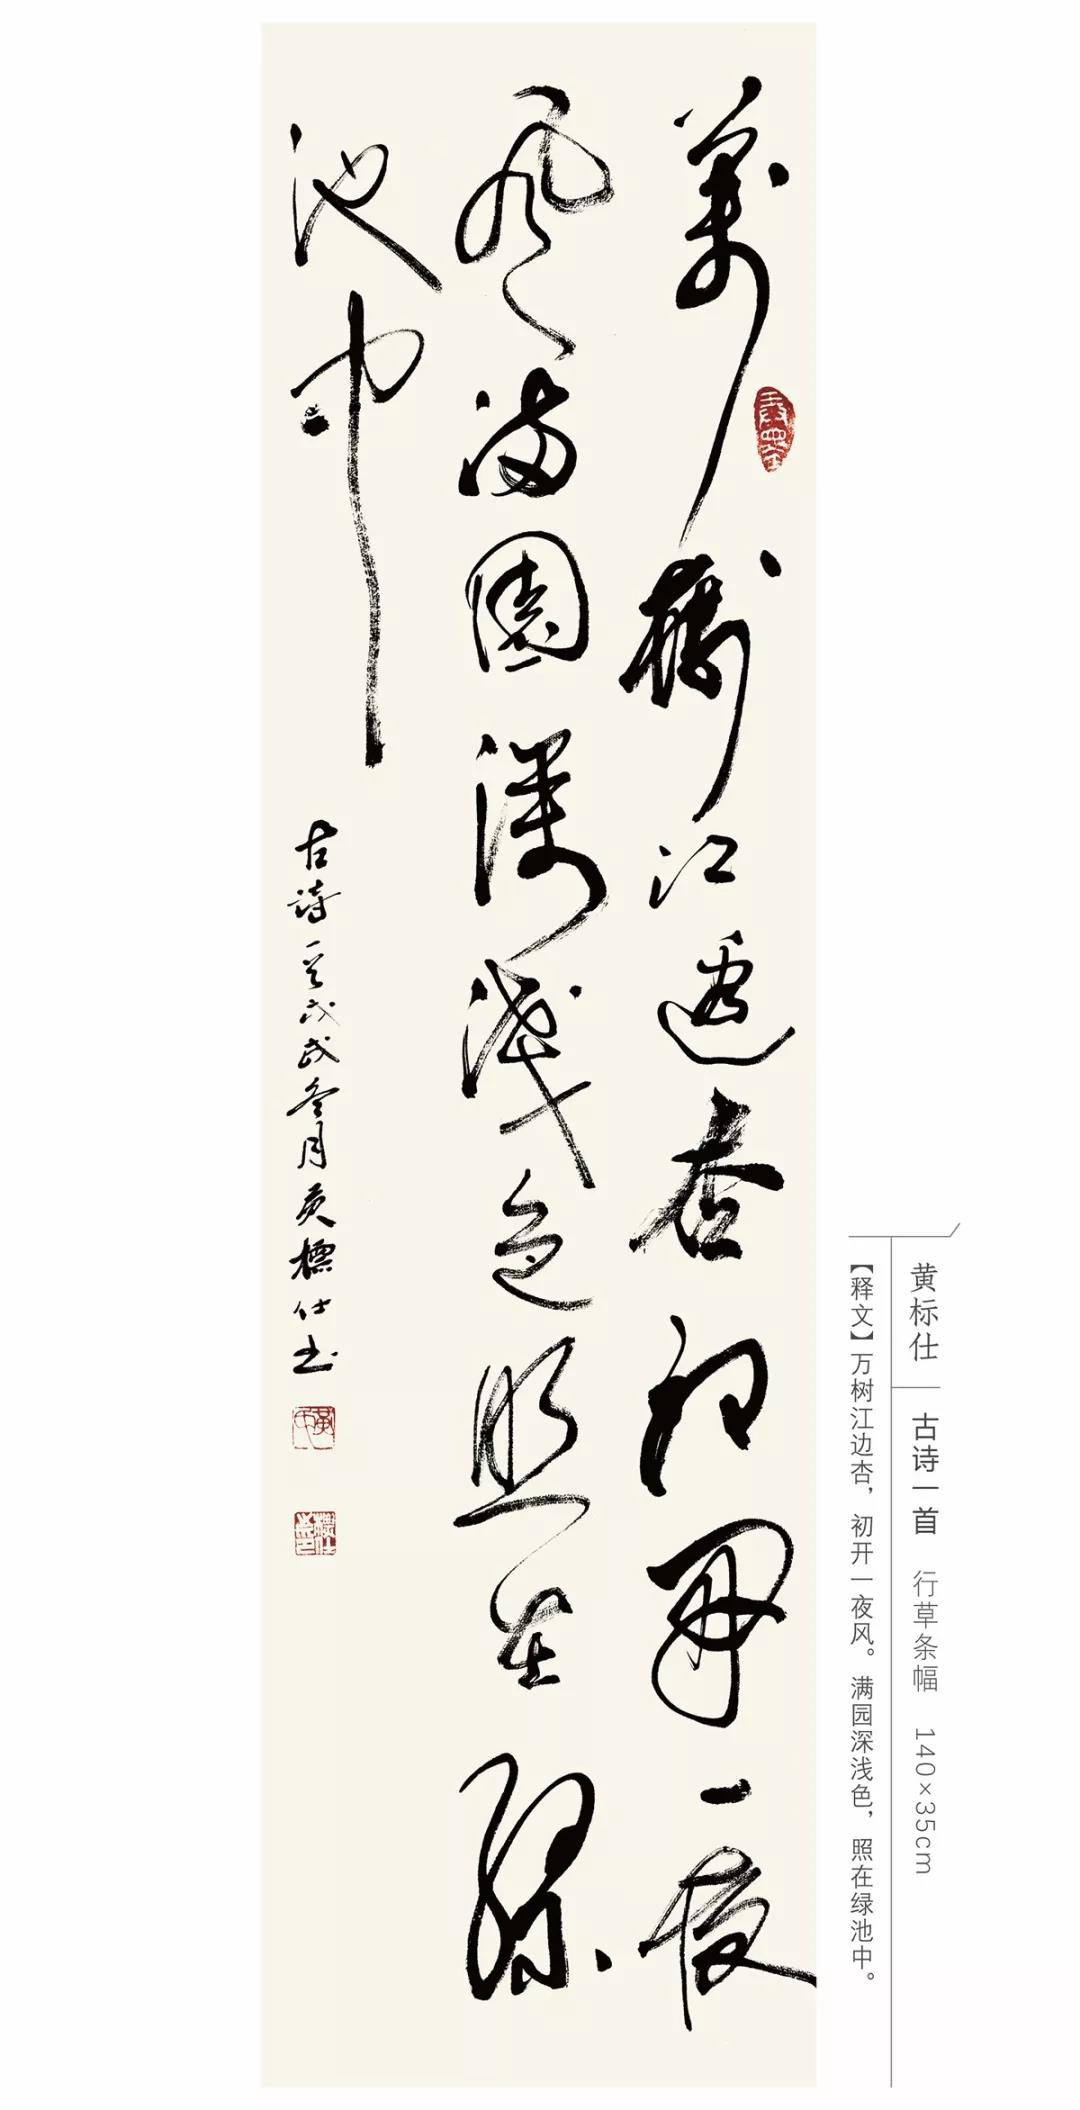 萬樹江邊杏初開一夜
風滿園深淺色照在綠
池中
古詩一首戊戌冬月黄標仕书
黄标仕 古诗一首 行草条幅 140×35cm
【释文】万树江边杏，初开一夜风。满园深浅色，照在绿池中。